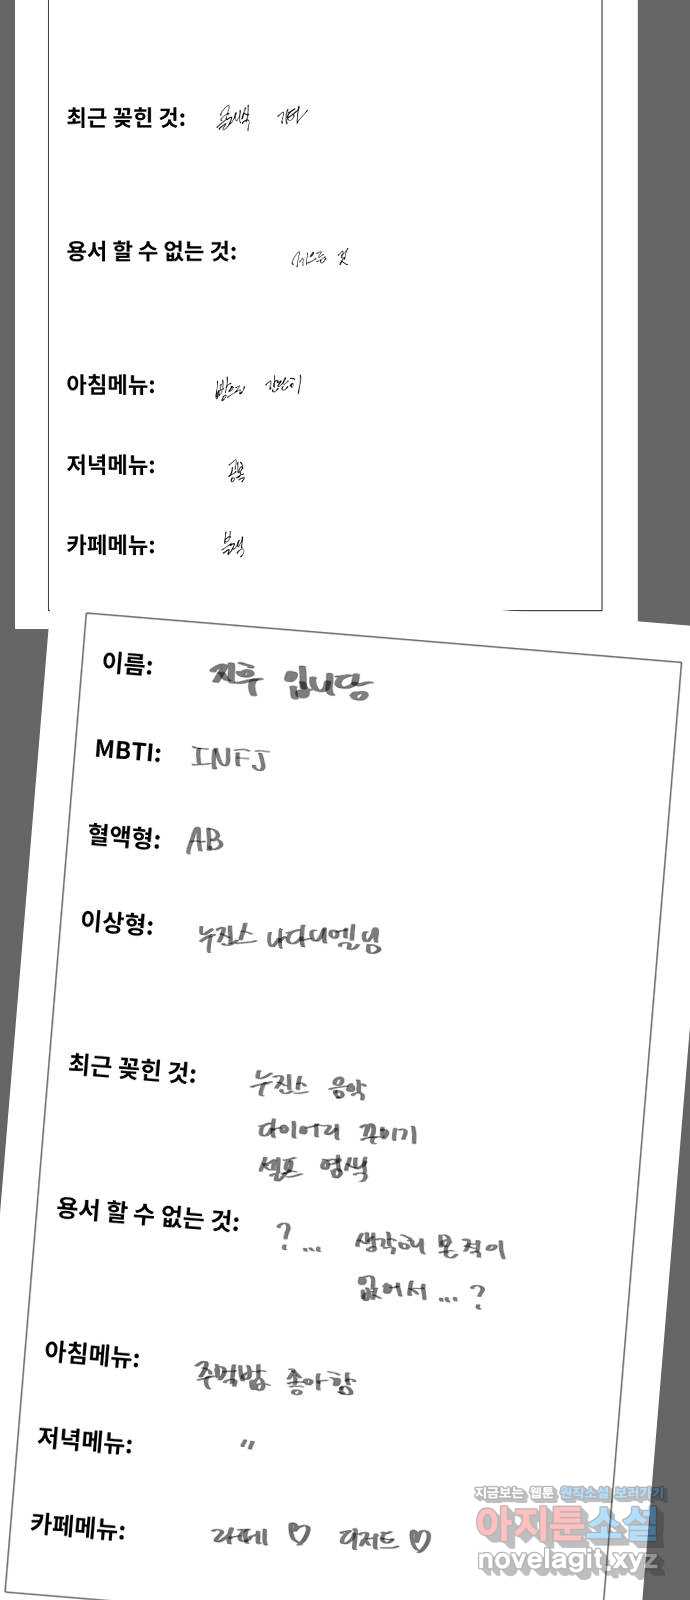 최근 꽂힌 것: 클래식 기타
용서 할 수 없는 것: 게으른 것
아침메뉴: 빵으로 간단히
저녁메뉴: 공복
카페메뉴: 블랙
이름: 지후 입니당
MBTI: INFJ
혈액형: AB
이상형: 누진스 나다니엘님
최근 꽂힌 것: 누진스 음악
다이어리 꾸미기
셀프 염색
용서 할 수 없는 것: ?... 생각해 본적이
없어서...?
아침메뉴: 주먹밥 좋아함
저녁메뉴: "
카페메뉴: 라떼 ♡ 디저트 ♡
지금보는 웹툰 원작소설 보러가기
아지툰소설
novelagit.xyz